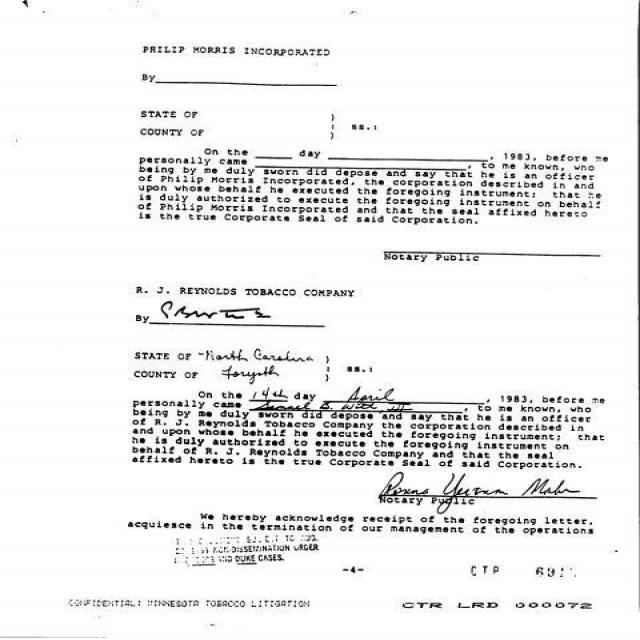 PHILIP MORRIS INCORPORATED
By
STATE OF )
: ss.:
COUNTY OF )
On the ____ day ____, 1983, before me
personally came ____, to me known, who
being by me duly sworn did depose and say that he is an officer
of Philip Morris Incorporated, the corporation described in and
upon whose behalf he executed the foregoing instrument; that he
is duly authorized to execute the foregoing instrument on behalf
of Philip Morris Incorporated and that the seal affixed hereto
is the true Corporate Seal of said Corporation.
Notary Public
R. J. REYNOLDS TOBACCO COMPANY
By
STATE OF North Carolina )
: ss.:
COUNTY OF Forsyth )
On the 14th day April, 1983, before me
personally came Samuel B. Witt III, to me known, who
being by me duly sworn did depose and say that he is an officer
of R. J. Reynolds Tobacco Company the corporation described in
and upon whose behalf he executed the foregoing instrument; that
he is duly authorized to execute the foregoing instrument on
behalf of R. J. Reynolds Tobacco Company and that the seal
affixed hereto is the true Corporate Seal of said Corporation.
Notary Public
We hereby acknowledge receipt of the foregoing letter,
acquiesce in the termination of our management of the operations
TO
NON-DISSEMINATION ORDER
AND DUKE CASES.
-4-
CTP 691
CONFIDENTIAL: MINNESOTA TOBACCO LITIGATION
CTR LRD 000072